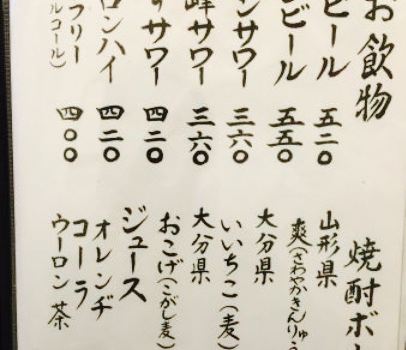 お飲物
ビール 五二〇
ビール 五五〇
ンサワー 三六〇
峰サワー 三六〇
サワー 四二〇
ロンハイ 四二〇
フリー 四〇〇
ルコール)
焼酎ボ
山形県
爽(さわやかきんりゅう
大分県
いいちこ(麦)
大分県
おこげ(こがし麦)
ジュース
オレンヂ
コーラ
ウーロン茶